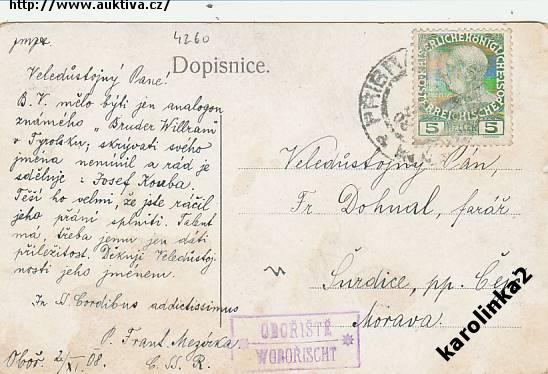 http://www.auktiva.cz/
pmpr.
4260
Dopisnice.
Veledůstojný Pane!
B. V. mělo býti jen analogon
známého „Bruder Willram"
v Tyrolsku; skrývati svého
jména nemínil a rád je
sděluje : Josef Kouba.
Těší ho velmi, že jste ráčil
jeho přání splniti. Talent
má, třeba jemu jen dáti
příležitost. Děkuji Veledůstoj-
nosti jeho jménem.
In SS. Cordibus addictissimus
P. Frant. Mezírka
C. SS. R.
Oboř. 2/XI 08.
Veledůstojný Pán,
Fr Dohnal, farář
Šurdice, pp.
Morava.
KAISERLICHE KÖNIGLICHE
OESTERREICHISCHE POST
5 HELLER 5
PŘIB
OBOŘIŠTĚ
WOBOŘISCHT
karolinka2